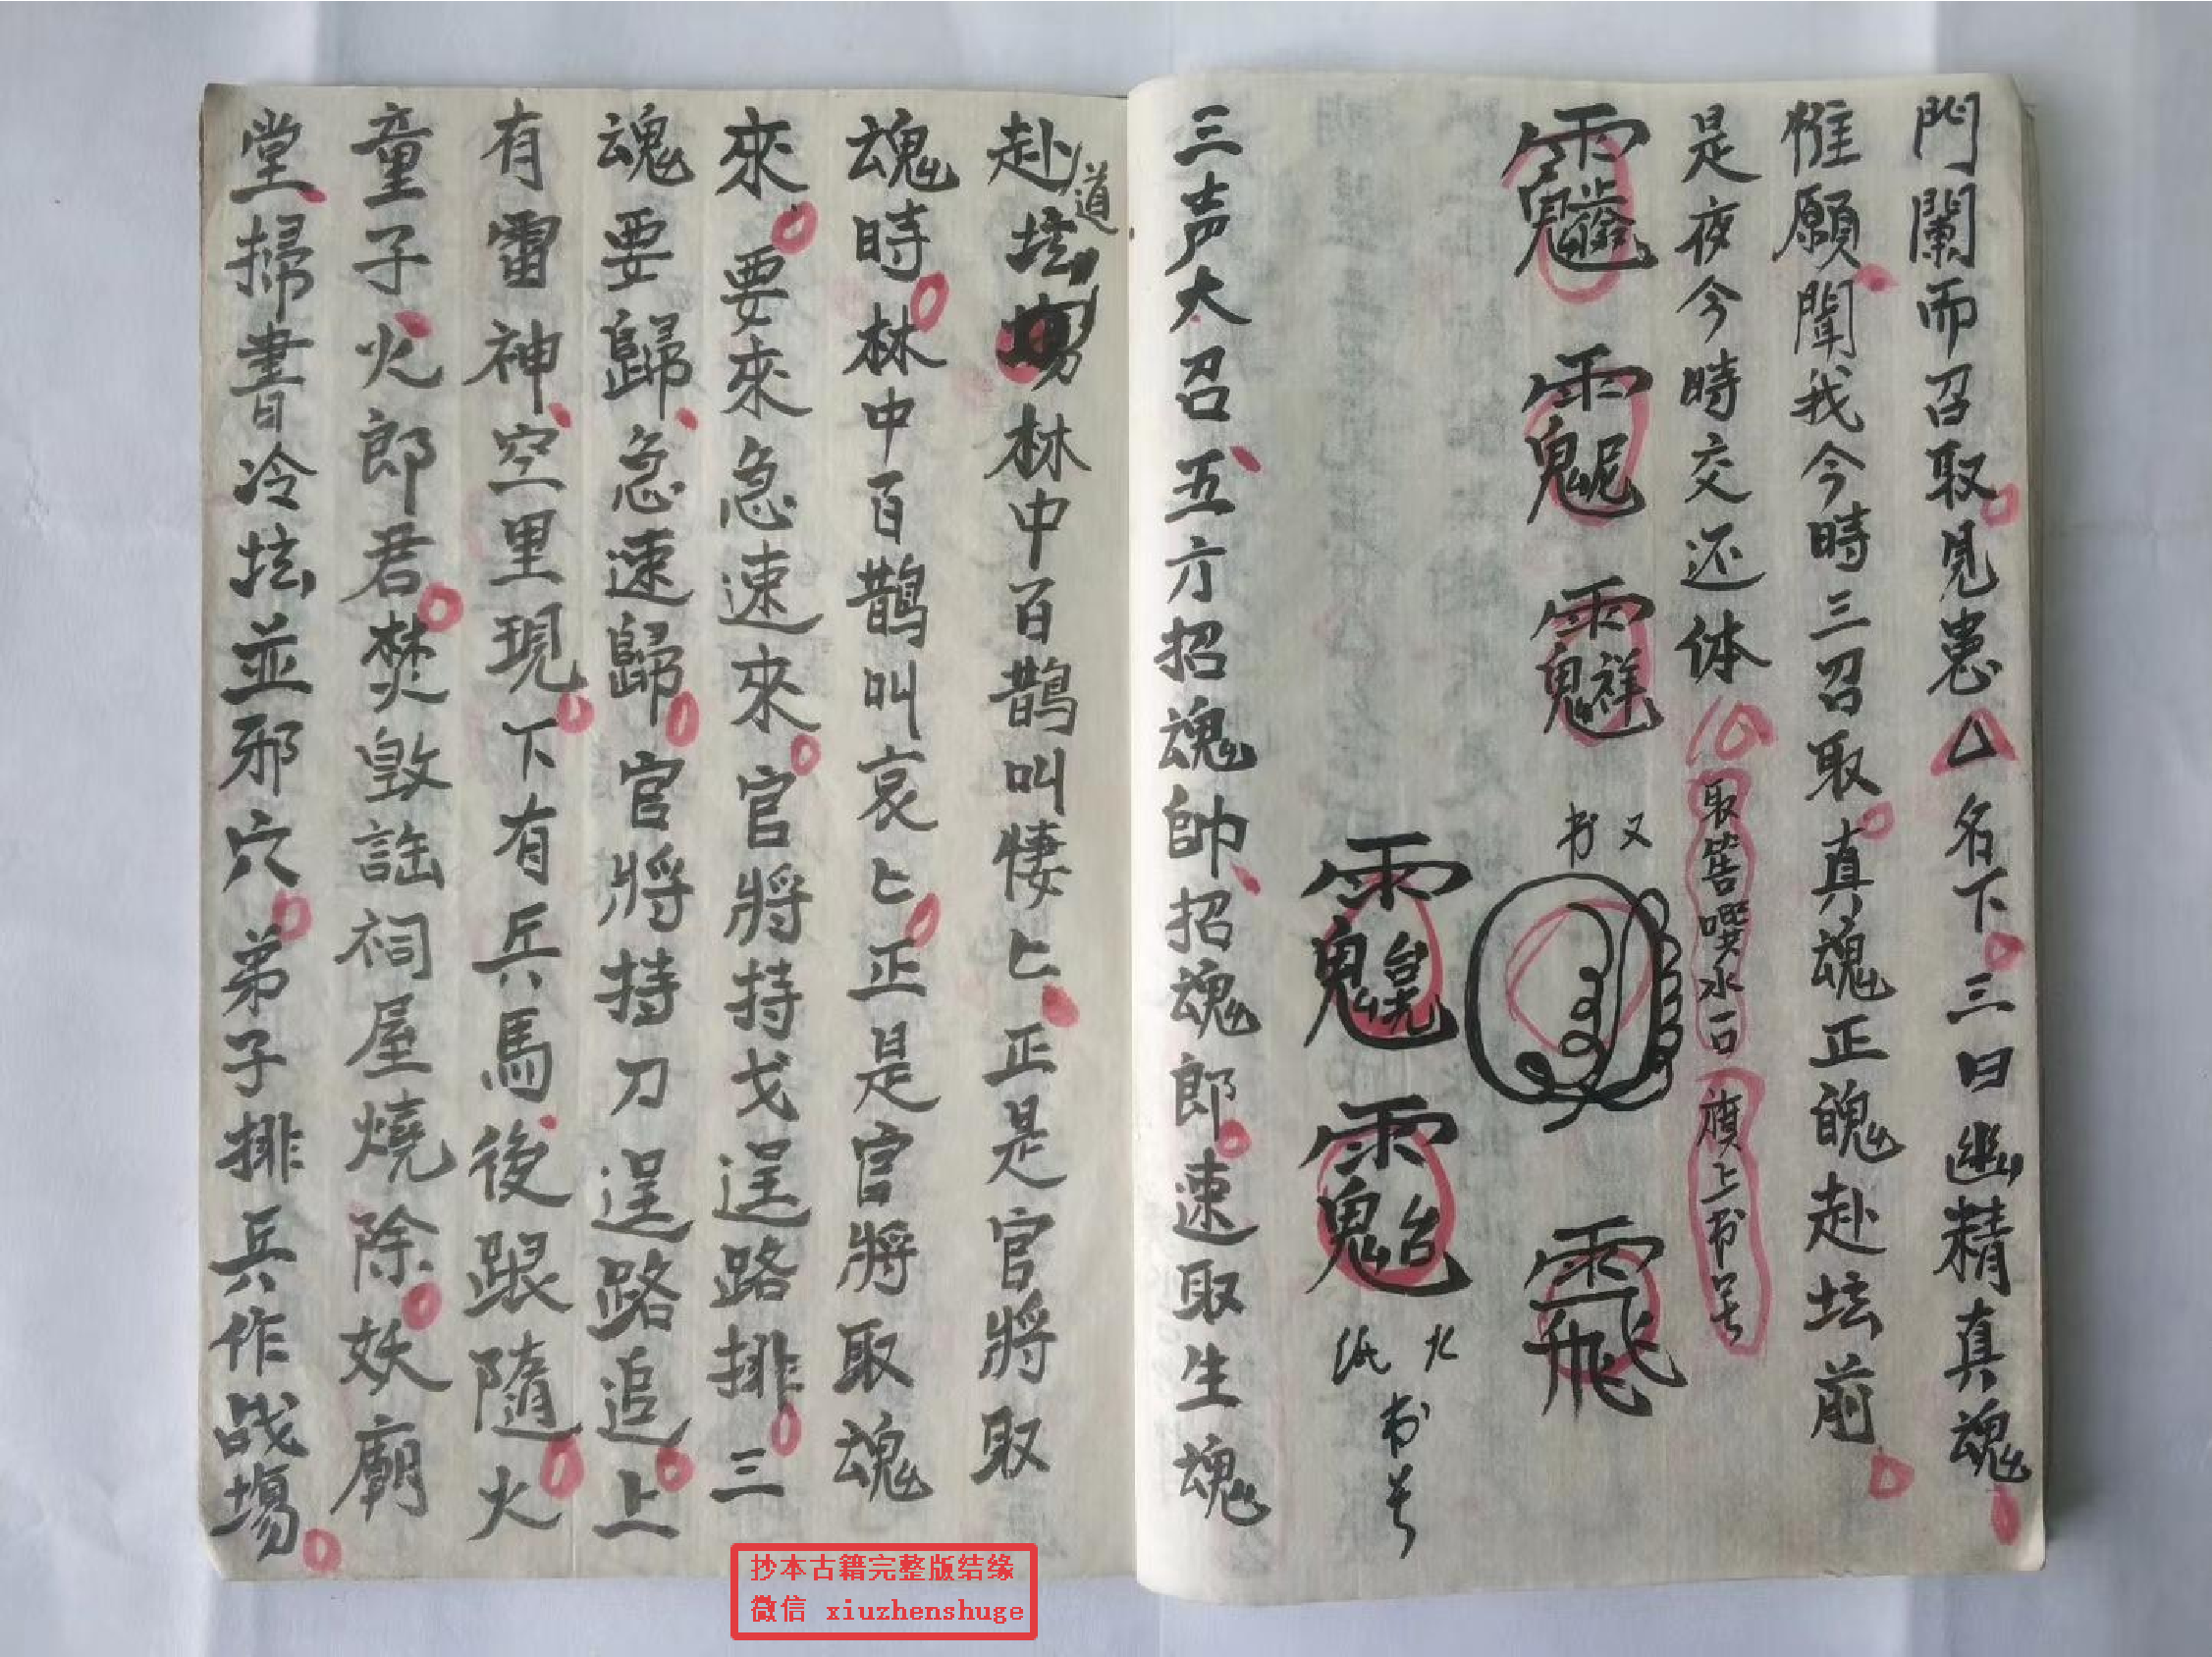 門闌而召取見患厶名下三曰幽精真魂
惟願聞我今時三召取真魂正魄赴坛前
是夜今時交还体
取筶噀水一口
旗上书号
又书
火纸书号
三声大召五方招魂帥招魂郎速取生魂
赴道坛林中百鵲叫悽匕正是官將取
魂時林中百鵲叫哀匕正是官將取魂
來要來急速來官將持戈逞路排三
魂要歸急速歸官將持刀逞路追上
有雷神空里現下有兵馬後跟隨火
童子火郎君焚毁謡祠屋燒除妖廟
堂掃書冷坛並邪穴弟子排兵作战場
抄本古籍完整版结缘
微信 xiuzhenshuge